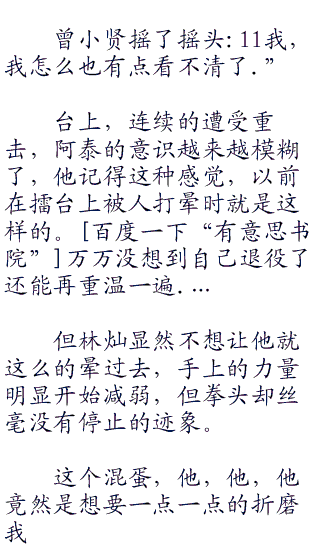 曾小贤摇了摇头: 11我，
我怎么也有点看不清了.”
台上，连续的遭受重
击，阿泰的意识越来越模糊
了，他记得这种感觉，以前
在擂台上被人打晕时就是这
样的。[百度一下“有意思书
院”]万万没想到自己退役了
还能再重温一遍. ...
但林灿显然不想让他就
这么的晕过去，手上的力量
明显开始减弱，但拳头却丝
毫没有停止的迹象。
这个混蛋，他，他，他
竟然是想要一点一点的折磨
我